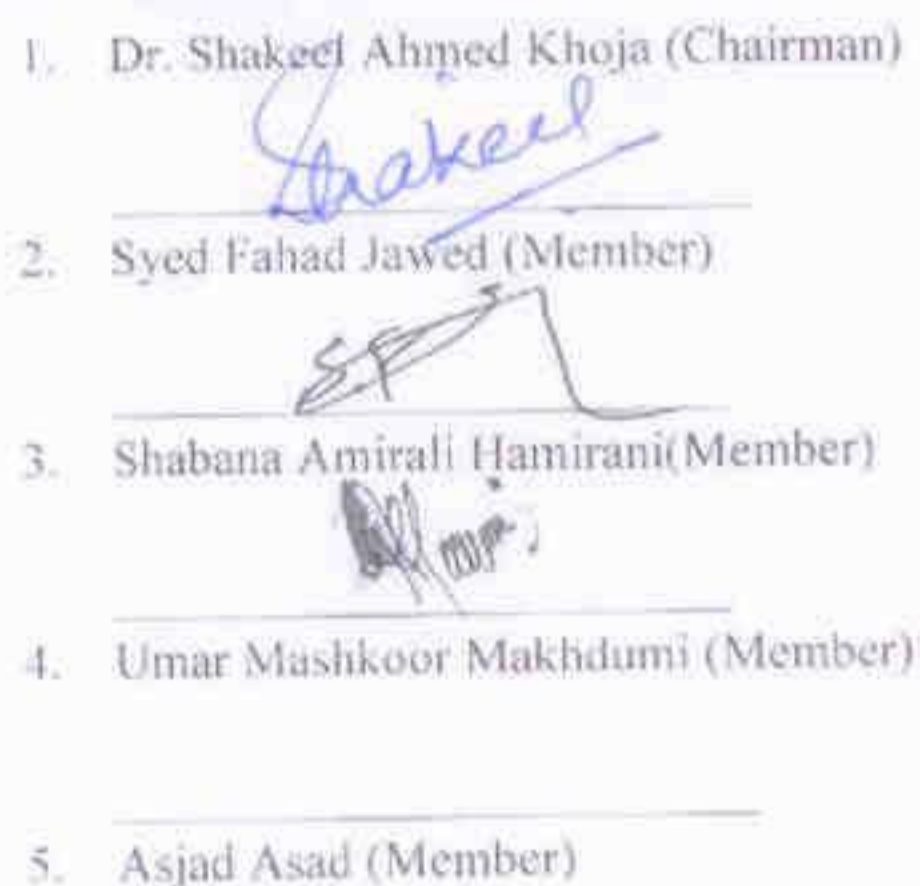 1. Dr. Shakeel Ahmed Khoja (Chairman)
Shakeel
2. Syed Fahad Jawed (Member)
3. Shabana Amirali Hamirani(Member)
4. Umar Mashkoor Makhdumi (Member)
5. Asjad Asad (Member)